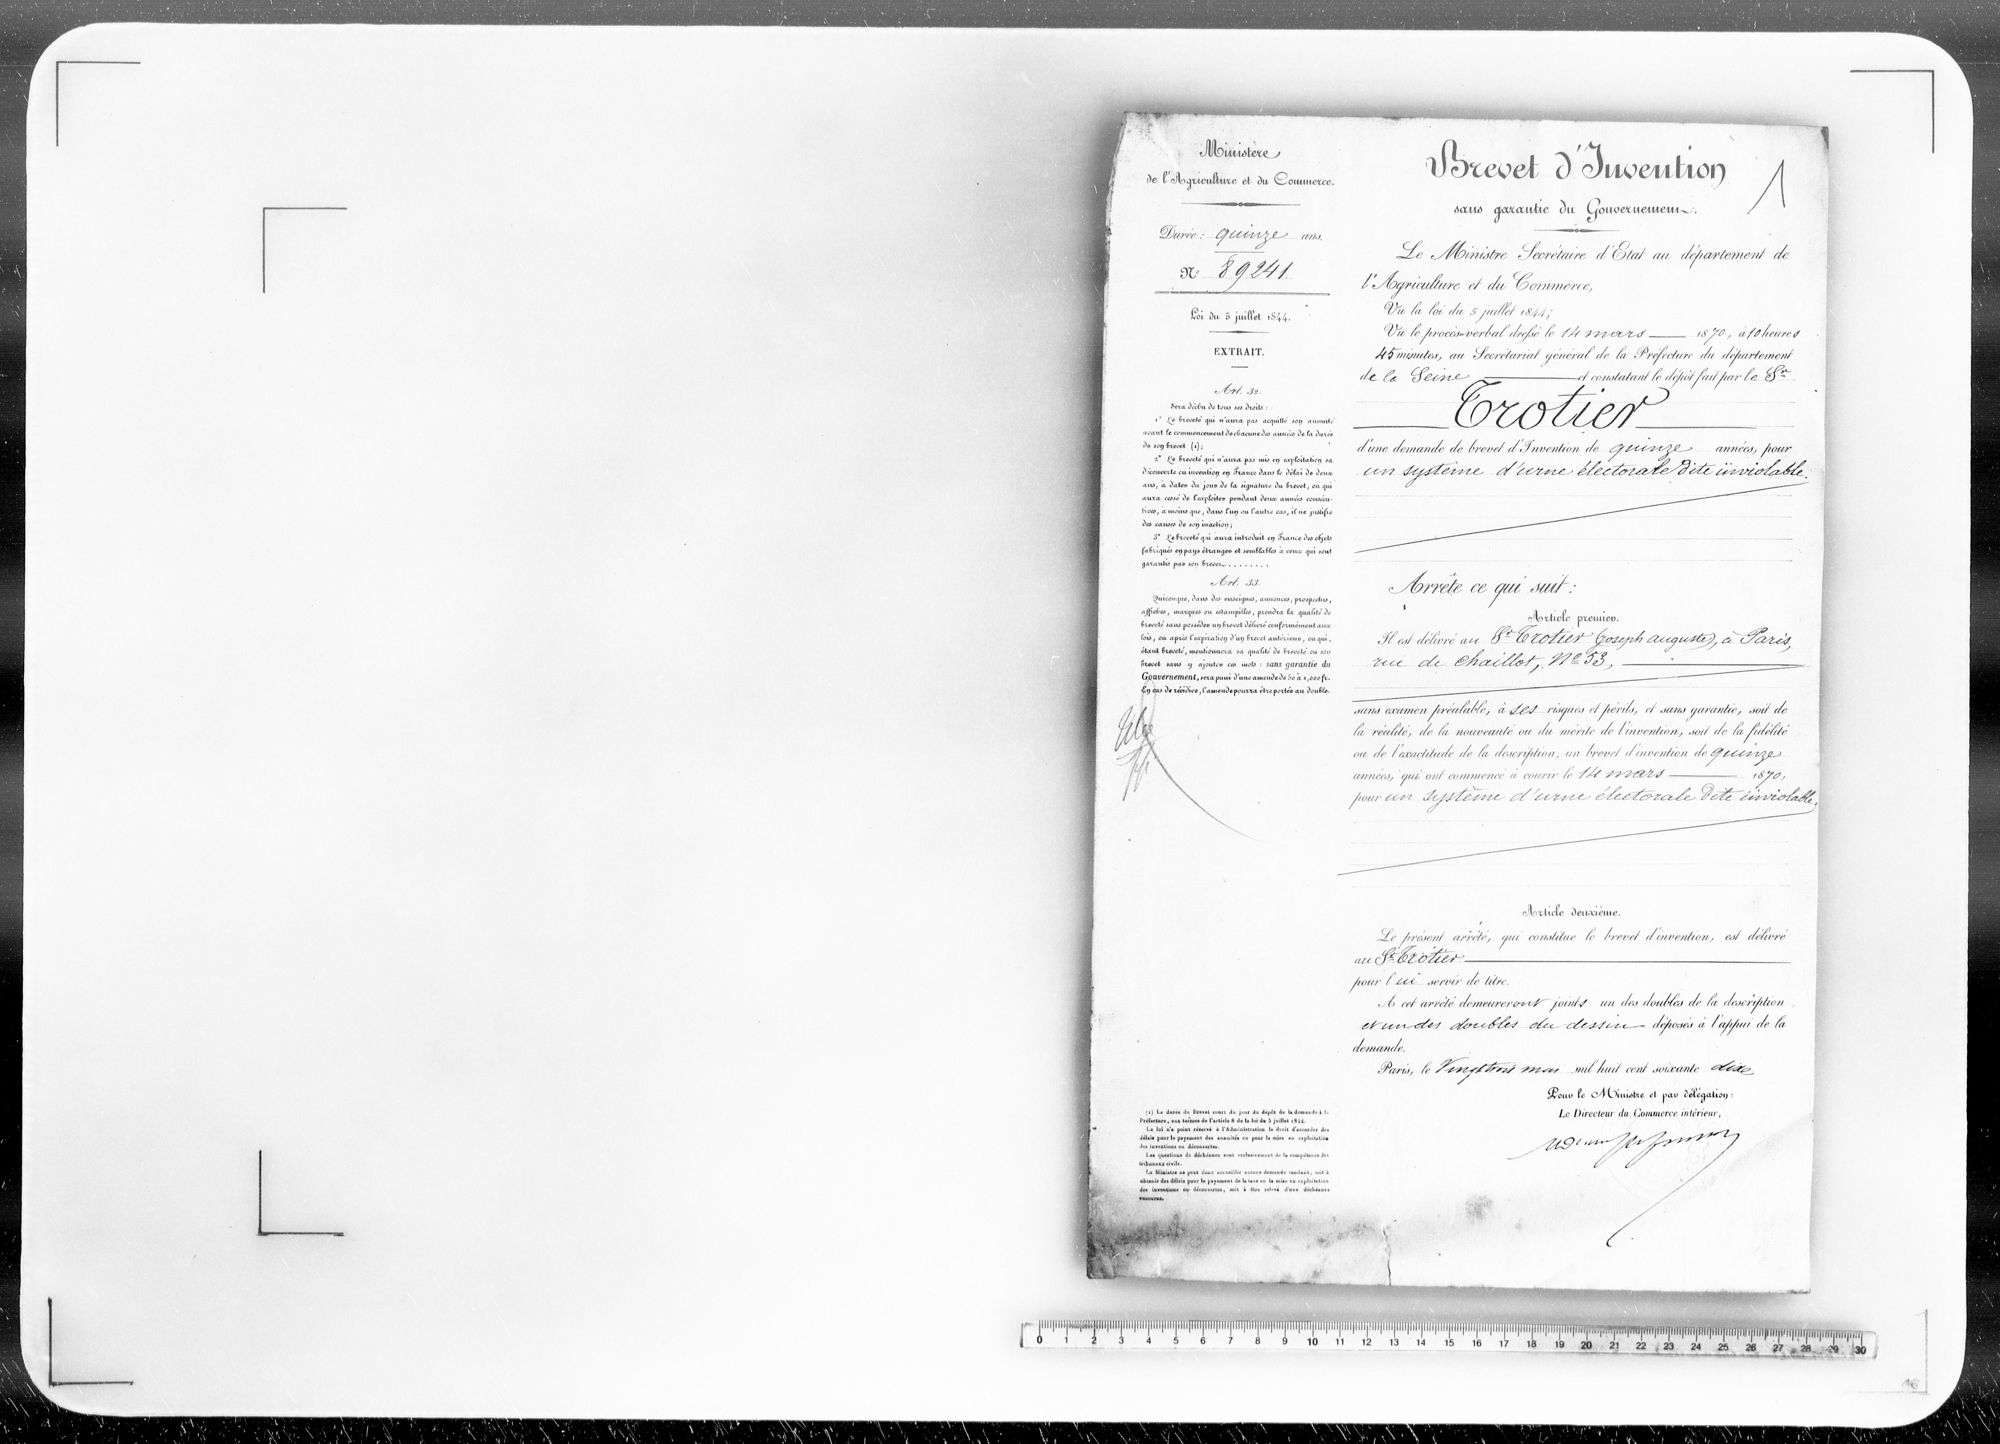 Ministère
de l'Agriculture et du Commerce.
Durée : quinze ans.
N° 89241.
Loi du 5 juillet 1844.
EXTRAIT.
Art. 32.
Sera déchu de tous ses droits :
1° Le breveté qui n'aura pas acquitté son annuité
avant le commencement de chacune des années de la durée
de son brevet (1) ;
2° Le breveté qui n'aura pas mis en exploitation sa
découverte ou invention en France dans le délai de deux
ans, à dater du jour de la signature du brevet, ou qui
aura cessé de l'exploiter pendant deux années consécu-
tives, à moins que, dans l'un ou l'autre cas, il ne justifie
des causes de son inaction ;
3° Le breveté qui aura introduit en France des objets
fabriqués en pays étranger et semblables à ceux qui sont
garantis par son brevet........
Art. 33.
Quiconque, dans des enseignes, annonces, prospectus,
affiches, marques ou estampilles, prendra la qualité de
breveté sans posséder un brevet délivré conformément aux
lois, ou après l'expiration d'un brevet antérieur, ou qui,
étant breveté, mentionnera sa qualité de breveté ou son
brevet sans y ajouter ces mots : sans garantie du
Gouvernement, sera puni d'une amende de 50 à 1,000 fr.
En cas de récidive, l'amende pourra être portée au double.
(1) La durée du Brevet court du jour du dépôt de la demande à la
Préfecture, aux termes de l'article 8 de la loi du 5 juillet 1844.
La loi n'a point réservé à l'Administration le droit d'accorder des
délais pour le payement des annuités ou pour la mise en exploitation
des inventions ou découvertes.
Les questions de déchéance sont exclusivement de la compétence des
tribunaux civils.
Le Ministre ne peut donc accueillir aucune demande tendant, soit à
obtenir des délais pour le payement de la taxe ou la mise en exploitation
des inventions ou découvertes, soit à être relevé d'une déchéance
encourue.
Brevet d'Invention
1
sans garantie du Gouvernement.
Le Ministre Secrétaire d'Etat au département de
l'Agriculture et du Commerce,
Vu la loi du 5 juillet 1844;
Vu le procès-verbal dressé le 14 mars 1870, à 10 heures
45 minutes, au Secrétariat général de la Préfecture du département
de la Seine et constatant le dépôt fait par le Sr
Trotier
d'une demande de brevet d'Invention de quinze années, pour
un système d'urne électorale dite inviolable.
Arrête ce qui suit :
Article premier.
Il est délivré au Sr Trotier (Joseph auguste), à Paris,
rue de Chaillot, No 53,
sans examen préalable, à ses risques et périls, et sans garantie, soit de
la réalité, de la nouveauté ou du mérite de l'invention, soit de la fidélité
ou de l'exactitude de la description, un brevet d'invention de quinze
années, qui ont commencé à courir le 14 mars 1870,
pour un système d'urne électorale dite inviolable.
Article deuxième.
Le présent arrêté, qui constitue le brevet d'invention, est délivré
au Sr Trotier
pour lui servir de titre.
A cet arrêté demeureront joints un des doubles de la description
et un des doubles du dessin déposés à l'appui de la
demande.
Paris, le Vingt trois mai mil huit cent soixante dix
Pour le Ministre et par délégation :
Le Directeur du Commerce intérieur,
0 1 2 3 4 5 6 7 8 9 10 11 12 13 14 15 16 17 18 19 20 21 22 23 24 25 26 27 28 29 30